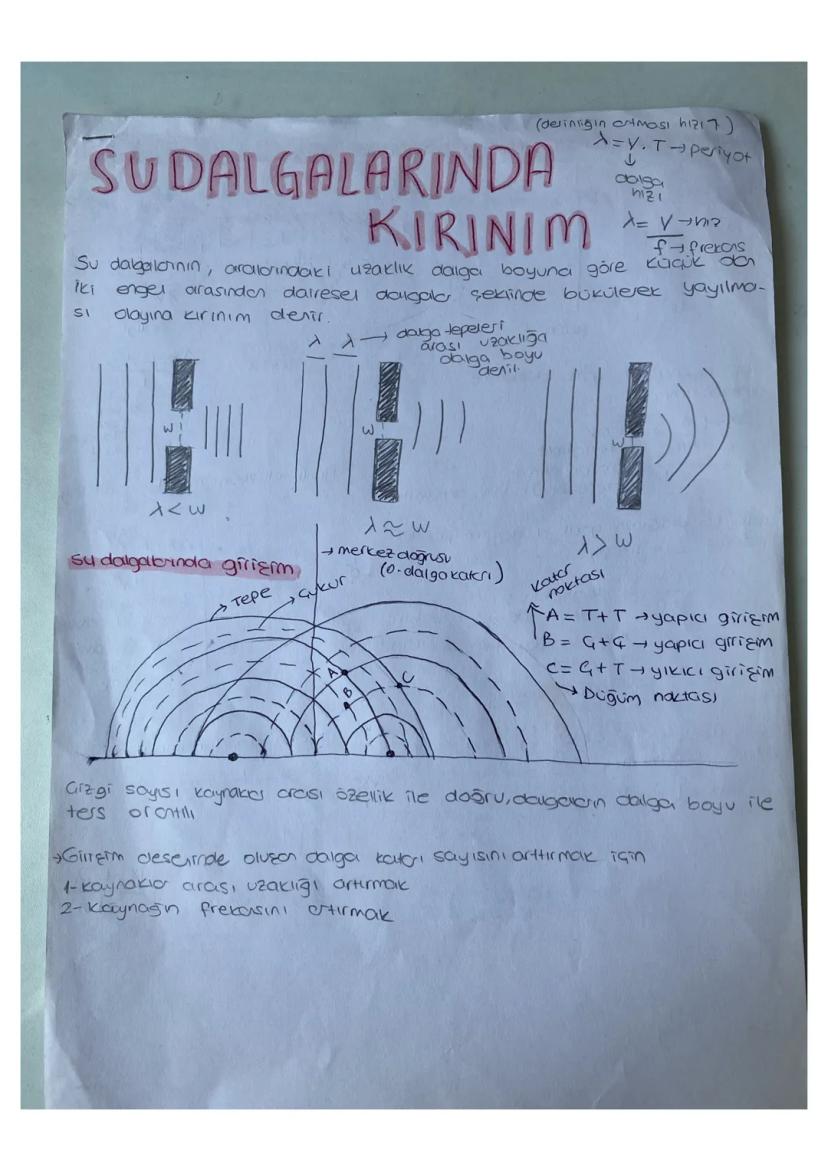 (derinliğin artması hızı ↑)
λ = V. T → periyot
↓
dalga
hızı
λ = V → hız
f → frekans
SU DALGALARINDA
KIRINIM
Su dalgalarının, aralarındaki uzaklık dalga boyuna göre küçük olan
iki engel arasından dairesel dalgalar şeklinde bükülerek yayılma-
sı olayına kırınım denir.
λ λ → dalga tepeleri
arası uzaklığa
dalga boyu
denir.
W
W
W
λ < W
λ ≈ W
λ > W
Su dalgalarında girişim
→ merkez doğrusu
(0. dalga katarı)
→ Tepe
→ Çukur
Katar
noktası
A = T+T → yapıcı girişim
B = Ç+Ç → yapıcı girişim
C = Ç+T → yıkıcı girişim
→ Düğüm noktası
A
B
C
Çizgi sayısı kaynaklar arası özellik ile doğru, dalgaların dalga boyu ile
ters orantılı
→ Girişim deseninde oluşan dalga katarı sayısını arttırmak için
1- kaynaklar arası uzaklığı artırmak
2- Kaynağın frekansını artırmak